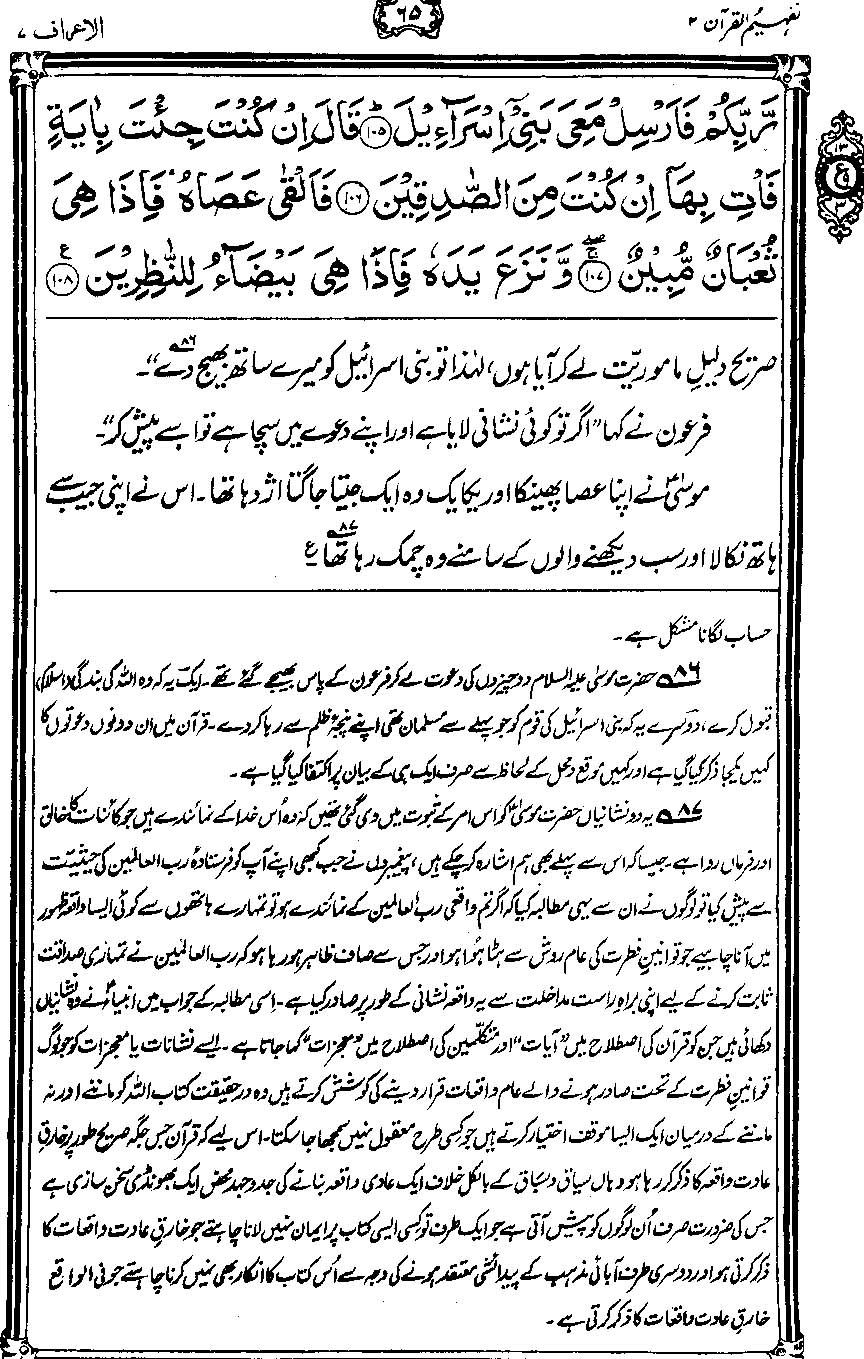 تفہیم القرآن ۲
۶۵
الاعراف ۷
رَّبِّكُمْ فَاَرْسِلْ مَعِيَ بَنِيْٓ اِسْرَآءِيْلَ ؕ﴿۱۰۵﴾ قَالَ اِنْ كُنْتَ جِئْتَ بِاٰيَةٍ
فَاْتِ بِهَآ اِنْ كُنْتَ مِنَ الصّٰدِقِيْنَ ﴿۱۰۶﴾ فَاَلْقٰى عَصَاهُ فَاِذَا هِيَ
ثُعْبَانٌ مُّبِيْنٌ ۚۖ﴿۱۰۷﴾ وَّ نَزَعَ يَدَهٗ فَاِذَا هِيَ بَيْضَآءُ لِلنّٰظِرِيْنَ ﴿۱۰۸﴾ ع
۱۳
ع
۳
صریح دلیلِ ماموریّت لے کر آیا ہوں، لہٰذا تو بنی اسرائیل کو میرے ساتھ بھیج دے۸۶“۔
فرعون نے کہا ”اگر تو کوئی نشانی لایا ہے اور اپنے دعوے میں سچا ہے تو اسے پیش کر“۔
موسیٰؑ نے اپنا عصا پھینکا اور یکایک وہ ایک جیتا جاگتا اژدہا تھا۔ اس نے اپنی جیب سے
ہاتھ نکالا اور سب دیکھنے والوں کے سامنے وہ چمک رہا تھا۸۷ ع
حساب لگانا مشکل ہے۔
۸۶ حضرت موسیٰ علیہ السلام دو چیزوں کی دعوت لے کر فرعون کے پاس بھیجے گئے تھے۔ ایک یہ کہ وہ اللہ کی بندگی (اسلام)
قبول کرے، دوسرے یہ کہ بنی اسرائیل کی قوم کو جو پہلے سے مسلمان تھی اپنے پنجۂ ظلم سے رہا کر دے۔ قرآن میں ان دونوں دعوتوں کا
کہیں یکجا ذکر کیا گیا ہے اور کہیں موقع و محل کے لحاظ سے صرف ایک ہی کے بیان پر اکتفا کیا گیا ہے۔
۸۷ یہ دو نشانیاں حضرت موسیٰؑ کو اس امر کے ثبوت میں دی گئی تھیں کہ وہ اُس خدا کے نمائندے ہیں جو کائنات کا خالق
اور فرماں روا ہے۔ جیسا کہ اس سے پہلے بھی ہم اشارہ کر چکے ہیں، پیغمبروں نے جب کبھی اپنے آپ کو فرستادۂ رب العالمین کی حیثیت
سے پیش کیا تو لوگوں نے ان سے یہی مطالبہ کیا کہ اگر تم واقعی رب العالمین کے نمائندے ہو تو تمہارے ہاتھوں سے کوئی ایسا واقعہ ظہور
میں آنا چاہیے جو قوانینِ فطرت کی عام روش سے ہٹا ہُوا ہو اور جس سے صاف ظاہر ہو رہا ہو کہ رب العالمین نے تمہاری صداقت
ثابت کرنے کے لیے اپنی براہِ راست مداخلت سے یہ واقعہ نشانی کے طور پر صادر کیا ہے۔ اِسی مطالبہ کے جواب میں انبیاءؑ نے وہ نشانیاں
دکھائی ہیں جن کو قرآن کی اصطلاح میں ”آیات“ اور متکلّمین کی اصطلاح میں ”معجزات“ کہا جاتا ہے۔ ایسے نشانات یا معجزات کو جو لوگ
قوانینِ فطرت کے تحت صادر ہونے والے عام واقعات قرار دینے کی کوشش کرتے ہیں وہ در حقیقت کتاب اللہ کو ماننے اور نہ
ماننے کے درمیان ایک ایسا موقف اختیار کرتے ہیں جو کسی طرح معقول نہیں سمجھا جا سکتا۔ اس لیے کہ قرآن جس جگہ صریح طور پر خارقِ
عادت واقعہ کا ذکر کر رہا ہو وہاں سیاق و سباق کے بالکل خلاف ایک عادی واقعہ بنانے کی جدوجہد محض ایک بھونڈی سخن سازی ہے
جس کی ضرورت صرف اُن لوگوں کو پیش آتی ہے جو ایک طرف تو کسی ایسی کتاب پر ایمان نہیں لانا چاہتے جو خارقِ عادت واقعات کا
ذکر کرتی ہو اور دوسری طرف آبائی مذہب کے پیدائشی معتقد ہونے کی وجہ سے اُس کتاب کا انکار بھی نہیں کرنا چاہتے جو فی الواقع
خارقِ عادت واقعات کا ذکر کرتی ہے۔